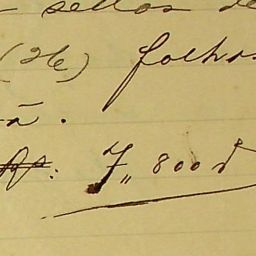 sellos de
(26) folhas
ã.
Rs: 7,,800